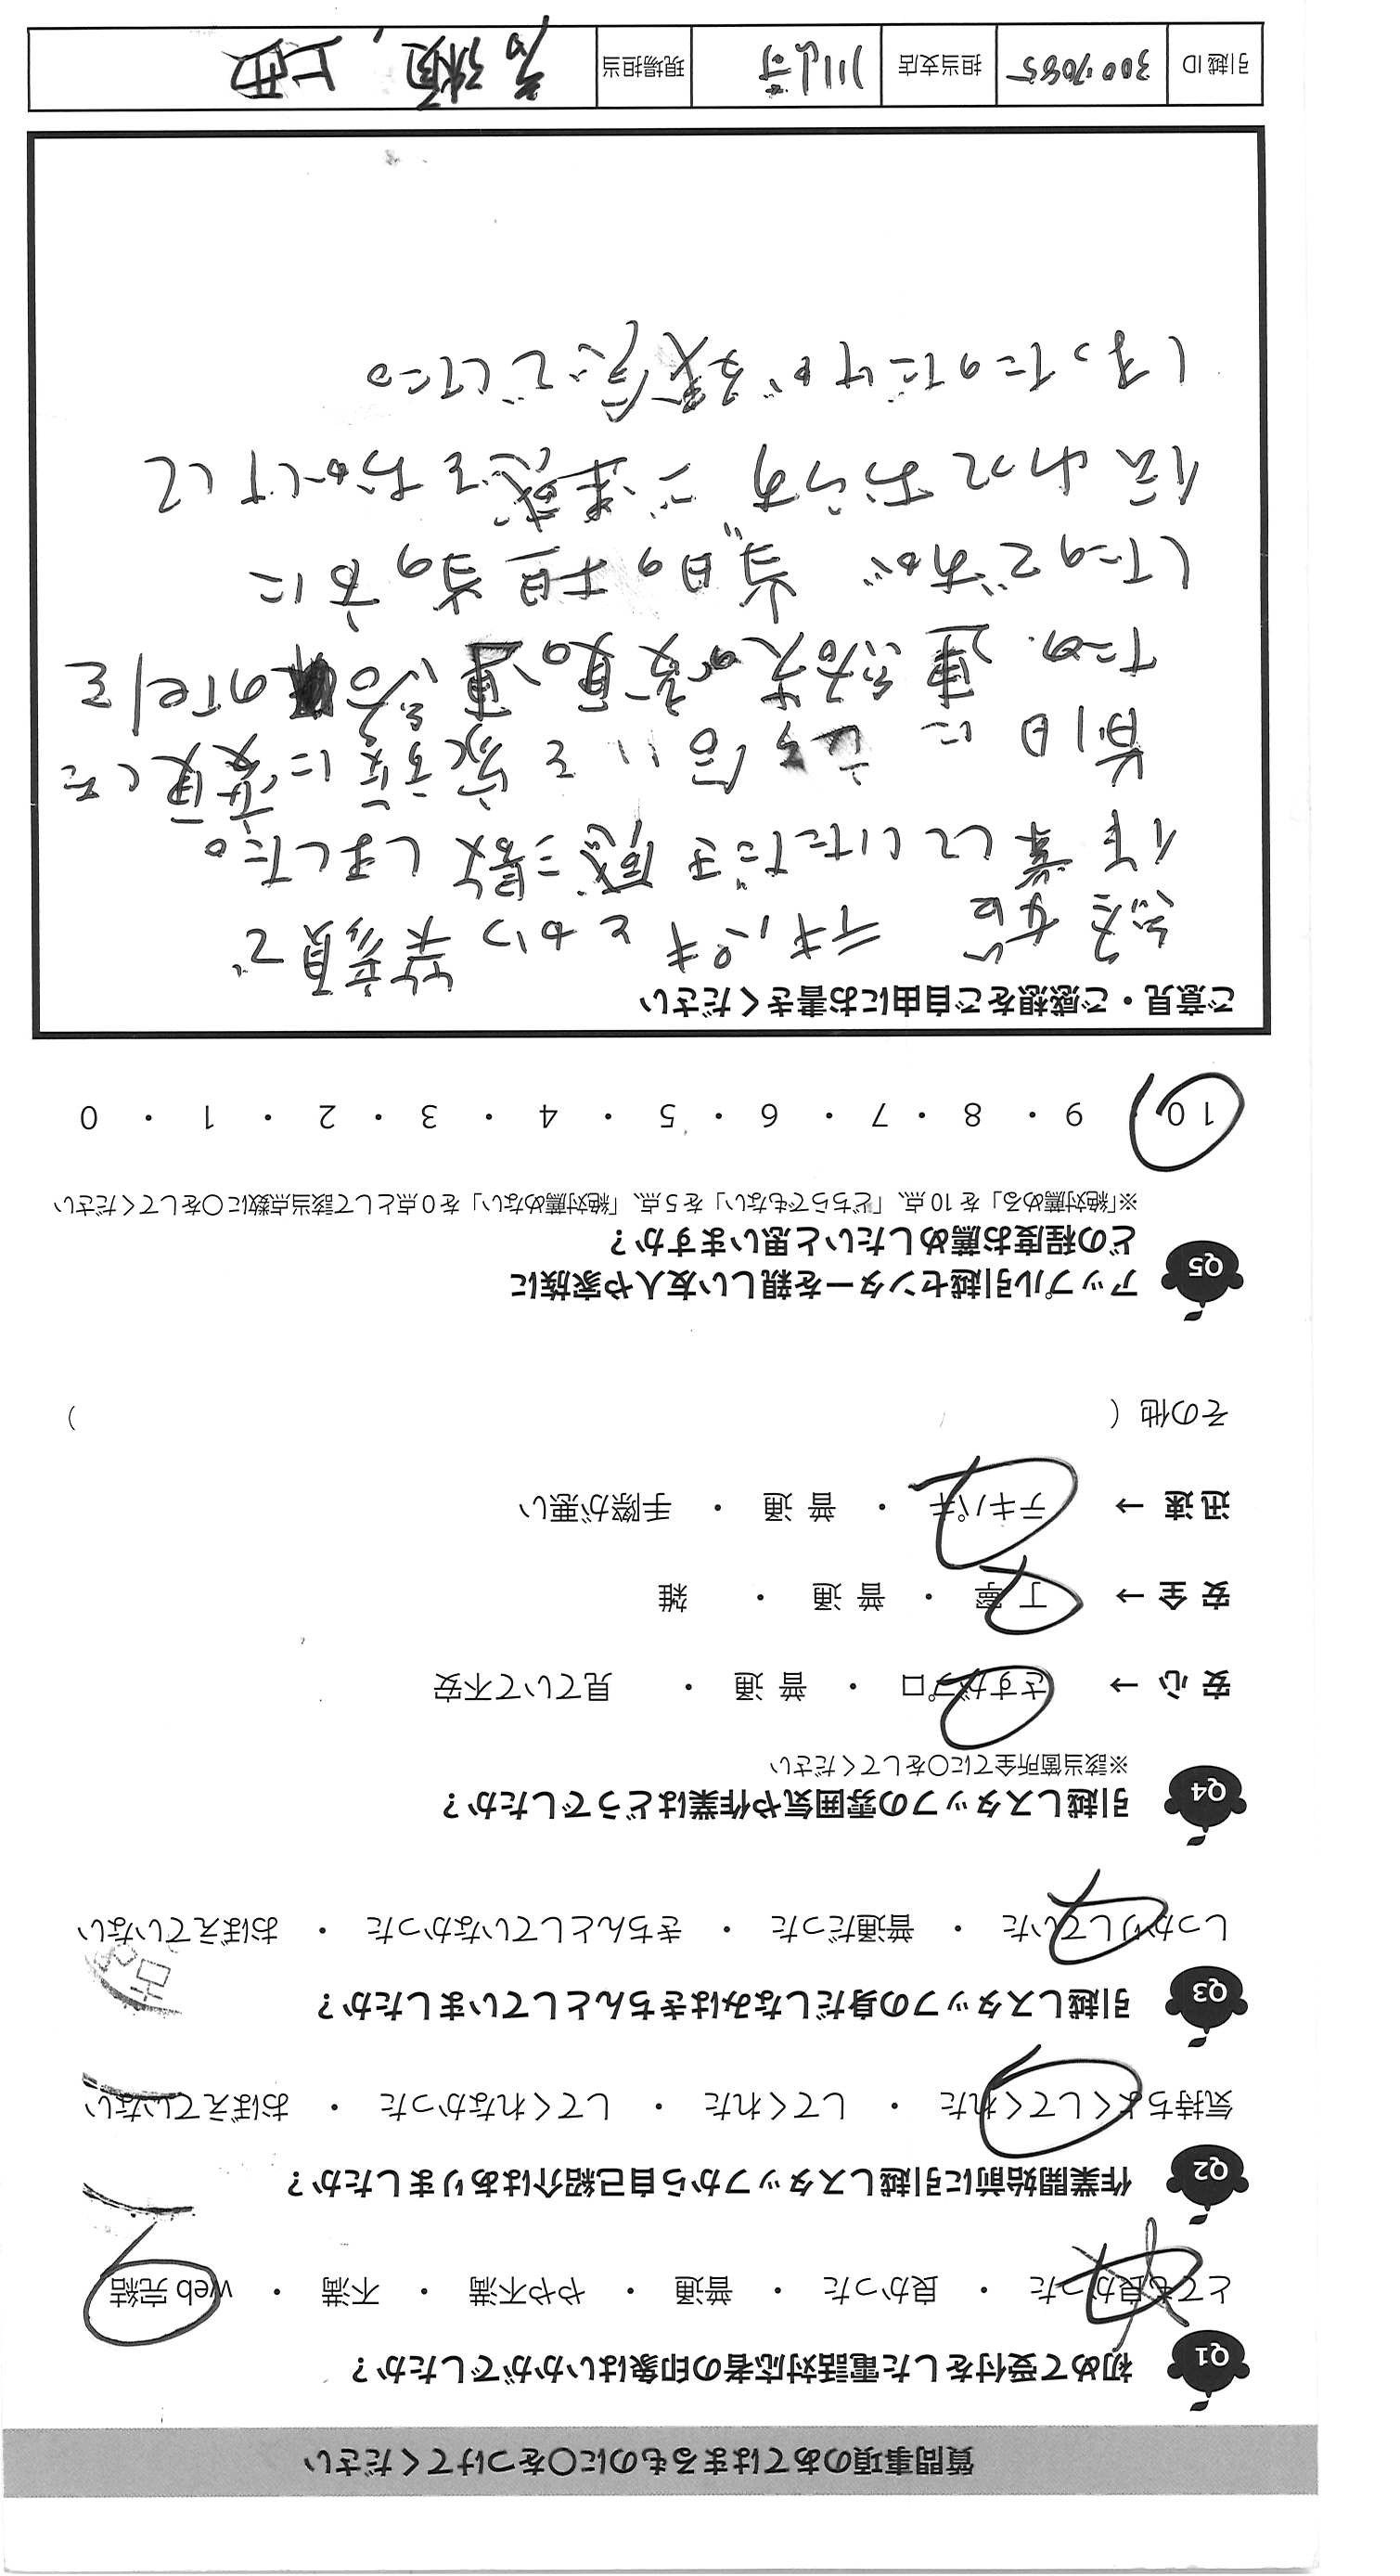 質問事項のあてはまるものに○をつけてください
Q1 初めて受付をした電話対応者の印象はいかがでしたか？
とても良かった ・ 良かった ・ 普通 ・ やや不満 ・ 不満 ・ web 完結
Q2 作業開始前に引越しスタッフから自己紹介はありましたか？
気持ちよくしてくれた ・ してくれた ・ してくれなかった ・ おぼえていない
Q3 引越しスタッフの身だしなみはきちんとしていましたか？
しっかりしていた ・ 普通だった ・ きちんとしていなかった ・ おぼえていない
Q4 引越しスタッフの雰囲気や作業はどうでしたか？
※該当箇所全てに○をしてください
安 心 → さすがプロ ・ 普 通 ・ 見ていて不安
安 全 → 丁 寧 ・ 普 通 ・ 雑
迅 速 → テキパキ ・ 普 通 ・ 手際が悪い
その他（ ）
Q5 アップル引越センターを親しい友人や家族に
どの程度お薦めしたいと思いますか？
※「絶対薦める」を 10 点、「どちらでもない」を 5 点、「絶対薦めない」を 0 点として該当点数に○をしてください
10 ・ 9 ・ 8 ・ 7 ・ 6 ・ 5 ・ 4 ・ 3 ・ 2 ・ 1 ・ 0
ご意見・ご感想をご自由にお書きください
テキパキとかつ笑顔で
作業していただき感激しました。
前日に 立ち合いを家族に変更した
ため、連絡先の変更の連絡のTelを
したのですが 当日の担当の方に
伝わっておらず ご迷惑をおかけして
しまったのだけが残念でした。
引越 ID 30070855 担当支店 川崎 現場担当 上西